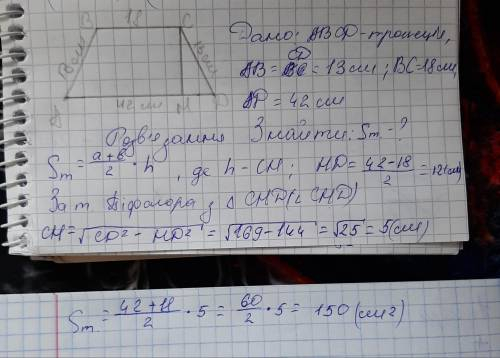 B 18 C
13см 13см
42 см H D
A
Дано: ABCD - трапеція,
AB = CD = 13см; BC = 18см,
AD = 42 см
Розв'язання Знайти: Sт - ?
Sт = a+b/2 · h, де h - CH; HD = 42-18/2 = 12(см)
За т Піфагора з △ CHD (∠ CHD)
CH = √CD² - HD² = √169-144 = √25 = 5(см)
Sт = 42+18/2 · 5 = 60/2 · 5 = 150 (см2)